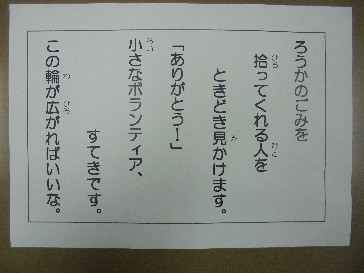 ろうかのごみを
拾ってくれる人を
ときどき見かけます。
「ありがとう!」
小さなボランティア、
すてきです。
この輪が広がればいいな。